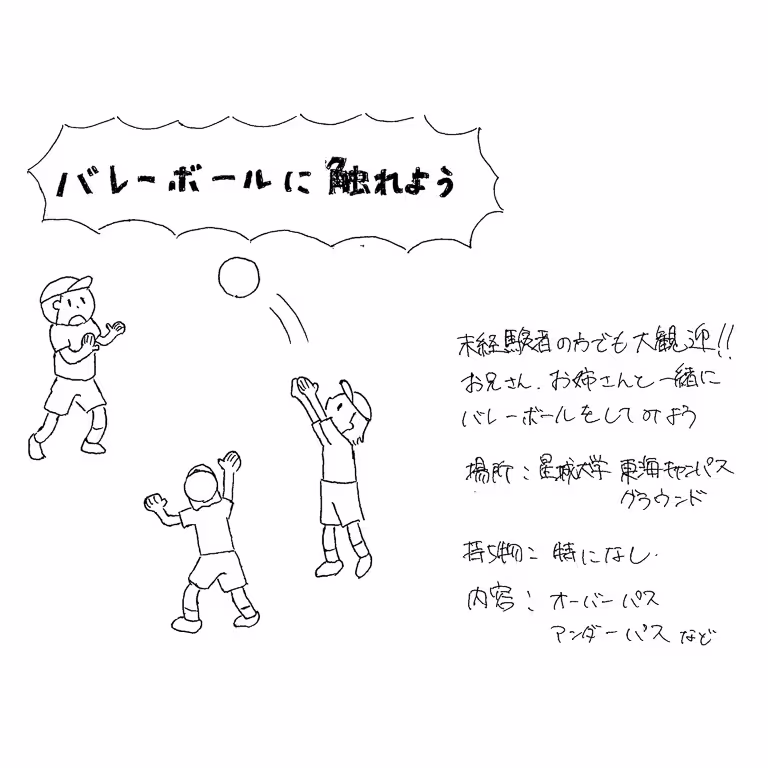 バレーボールに触れよう
未経験者の方でも大観迎!!
お兄さん、お姉さんと一緒に
バレーボールをしてみよう
場所：星城大学 東海キャンパス
グラウンド
持ち物：特になし．
内容：オーバーパス
アンダーパスなど